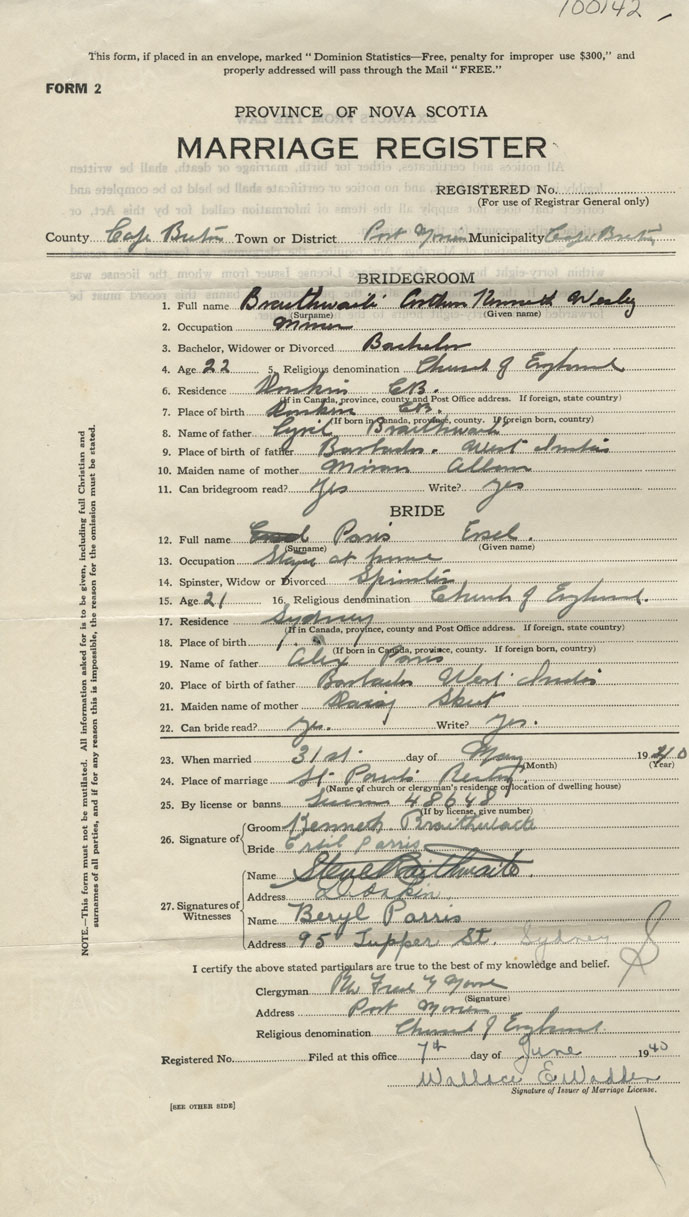 100142
This form, if placed in an envelope, marked "Dominion Statistics—Free, penalty for improper use $300," and
properly addressed will pass through the Mail "FREE."
FORM 2
PROVINCE OF NOVA SCOTIA
MARRIAGE REGISTER
REGISTERED No.
(For use of Registrar General only)
County Cape Breton Town or District Port Morien Municipality Cape Breton
BRIDEGROOM
1. Full name Braithwaite Arthur Kenneth Wesley
(Surname) (Given name)
2. Occupation Miner
3. Bachelor, Widower or Divorced Bachelor
4. Age 22 5. Religious denomination Church of England
6. Residence Donkin C.B.
(If in Canada, province, county and Post Office address. If foreign, state country)
7. Place of birth Donkin C.B.
(If born in Canada, province, county. If foreign born, country)
8. Name of father Cyril Braithwaite
9. Place of birth of father Barbados. West Indies
10. Maiden name of mother Allan
11. Can bridegroom read? Yes Write? yes
BRIDE
12. Full name Paris Ersel.
(Surname) (Given name)
13. Occupation Stays at home
14. Spinster, Widow or Divorced Spinster
15. Age 21 16. Religious denomination Church of England.
17. Residence Sydney
(If in Canada, province, county and Post Office address. If foreign, state country)
18. Place of birth
(If born in Canada, province, county. If foreign born, country)
19. Name of father Alex Paris
20. Place of birth of father Barbados West Indies
21. Maiden name of mother Daisy
22. Can bride read? yes. Write? yes.
23. When married 31st day of May 1940
(Month) (Year)
24. Place of marriage St. Paul's Rectory
(Name of church or clergyman's residence or location of dwelling house)
25. By license or banns License 48648
(If by license, give number)
26. Signature of Groom Kenneth Braithwaite
Bride Ersil Parris
27. Signatures of Witnesses Name Steve Braithwaite
Address Donkin
Name Beryl Parris
Address 95 Tupper St. Sydney
I certify the above stated particulars are true to the best of my knowledge and belief.
Clergyman
(Signature)
Address Port Morien
Religious denomination Church of England
Registered No. Filed at this office 7th day of June 1940
Wallace E Wadden
Signature of Issuer of Marriage License.
[SEE OTHER SIDE]
NOTE.—This form must not be mutilated. All information asked for is to be given, including full Christian and
surnames of all parties, and if for any reason this is impossible, the reason for the omission must be stated.